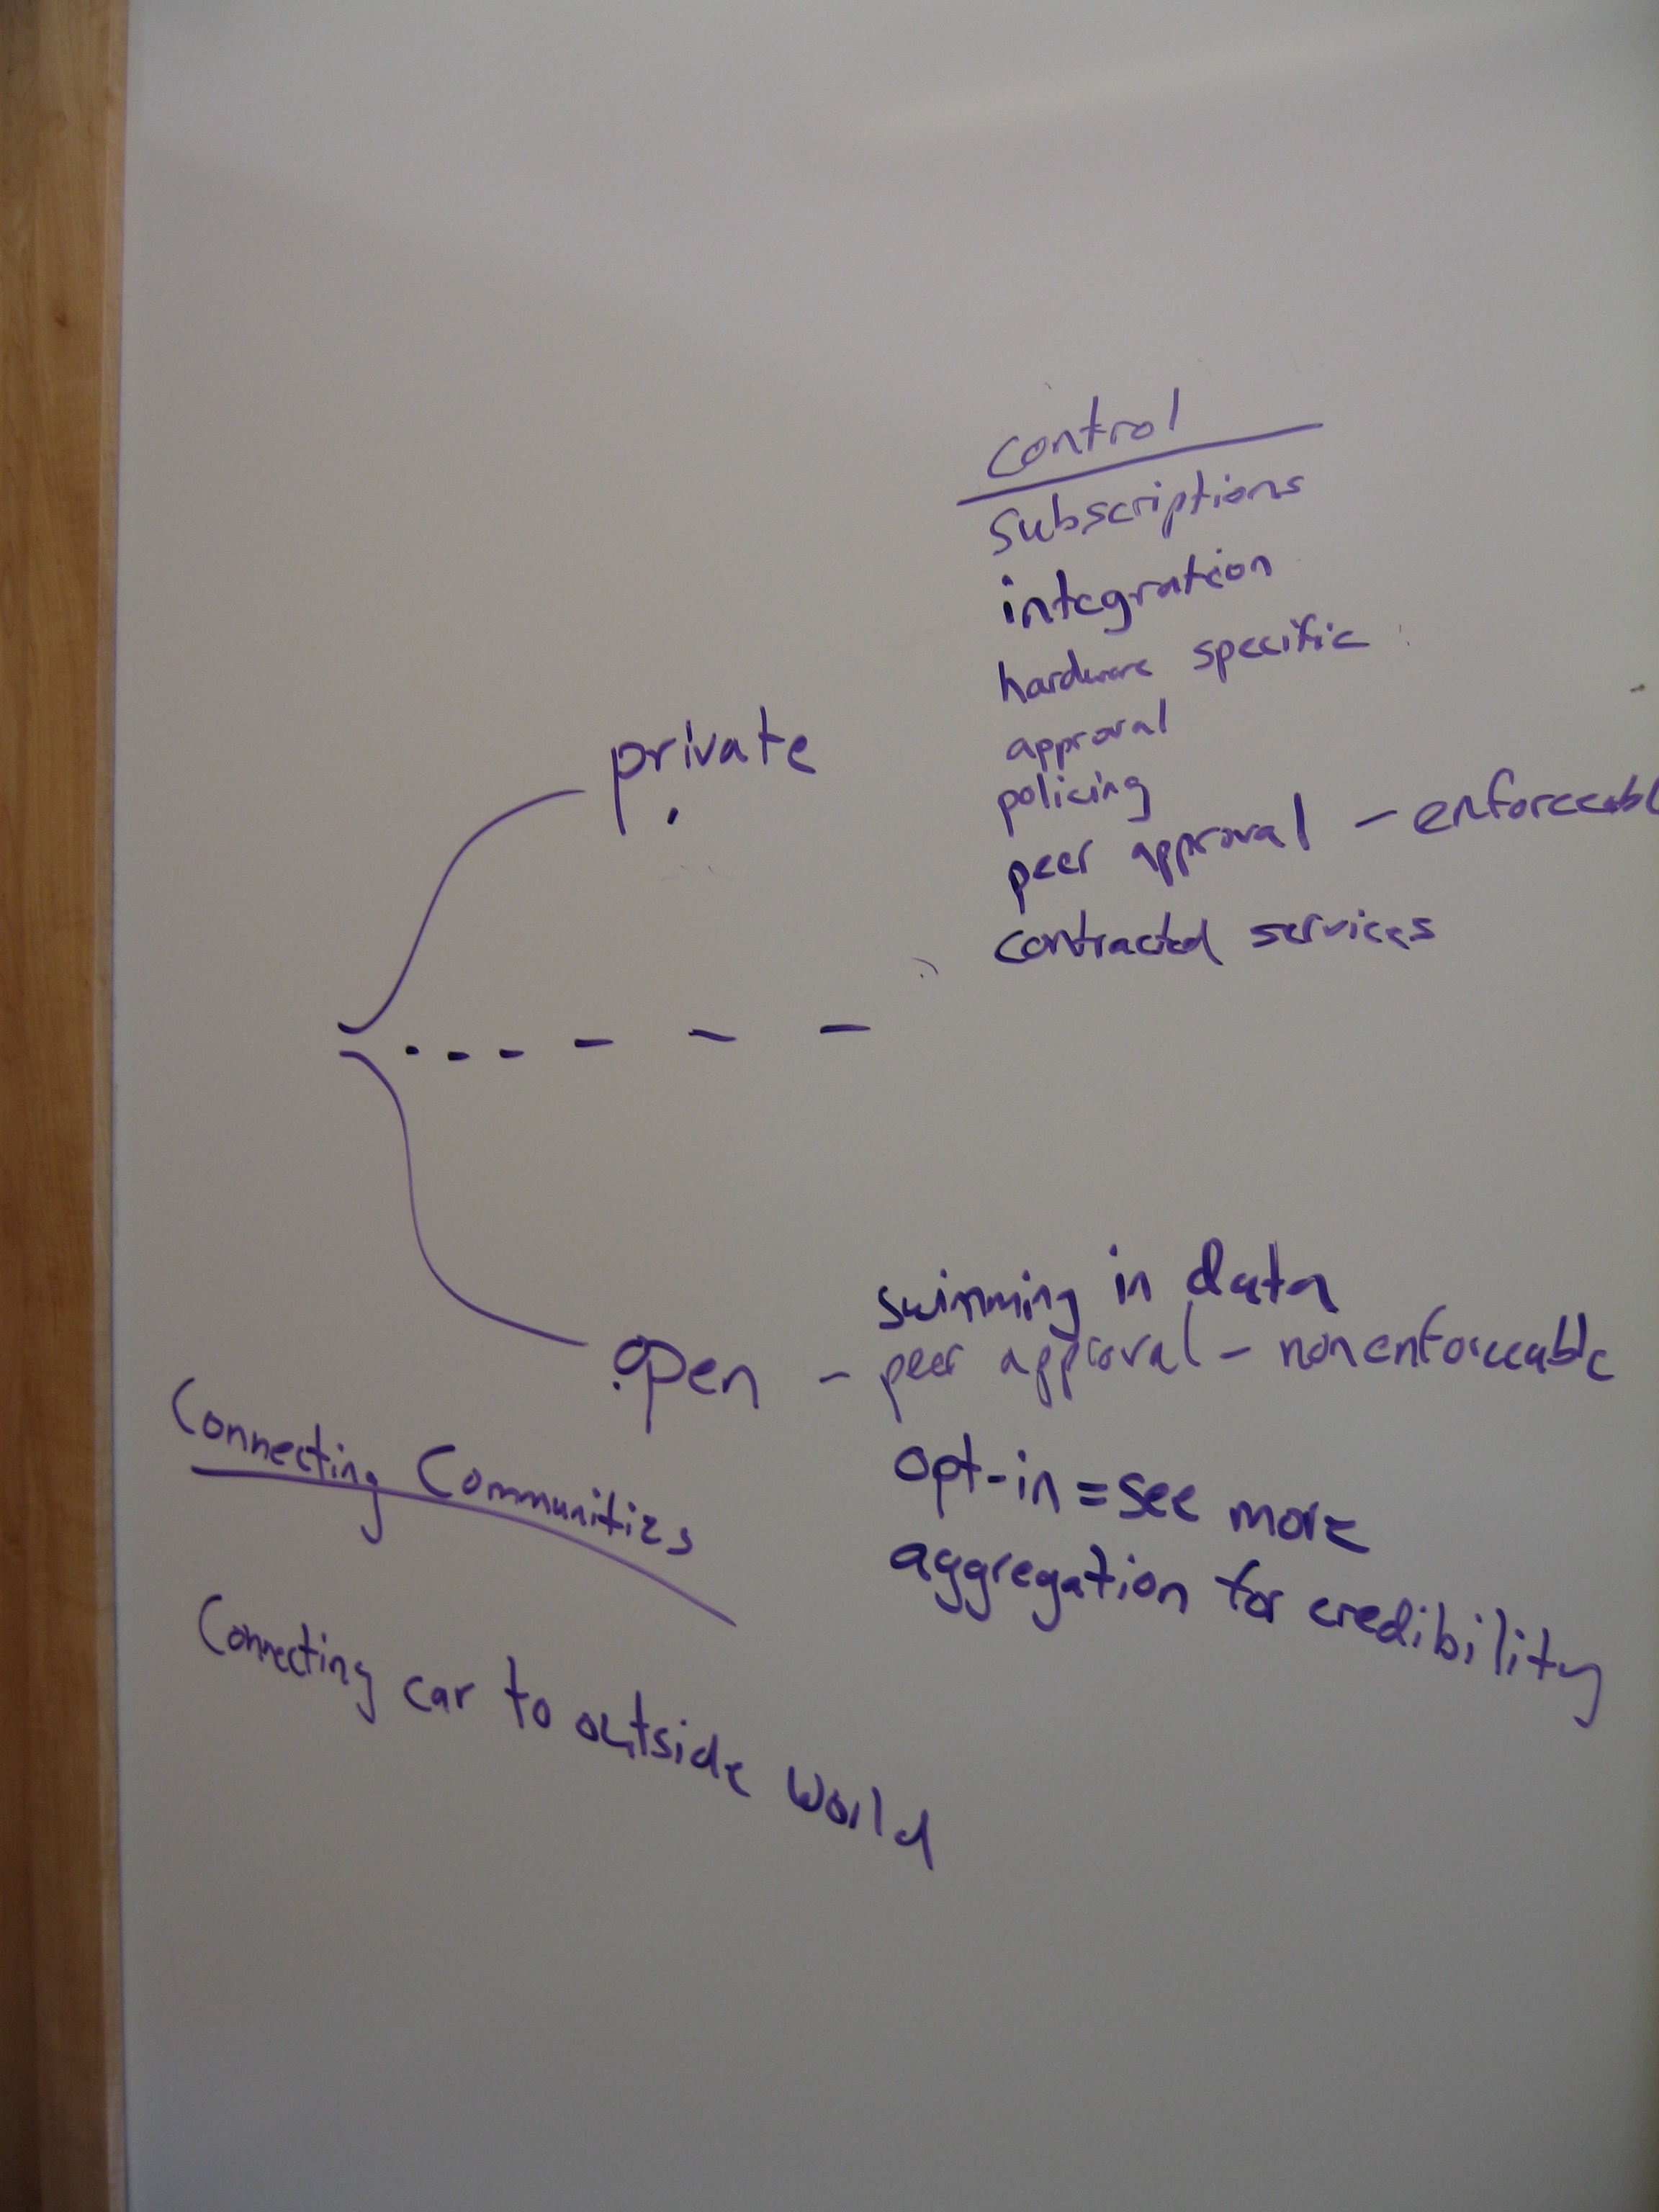 control
subscriptions
integration
hardware specific
approval
policing
peer approval - enforceabl
contracted services
private
swimming in data
open - peer approval - nonenforceable
opt-in = see more
aggregation for credibility
Connecting Communities
Connecting car to outside World